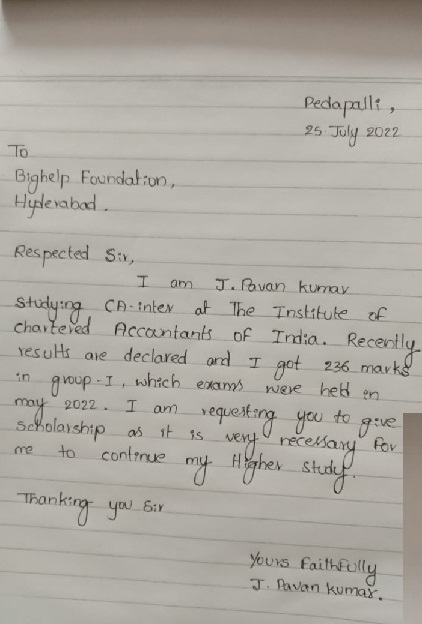 Pedapalli,
25 July 2022
To
Bighelp Foundation,
Hyderabad.
Respected Sir,
I am J. Pavan kumar
studying CA-inter at The Institute of
chartered Accountants of India. Recently
results are declared and I got 236 marks
in group-I, which exams were held in
may 2022. I am requesting you to give
scholarship as it is very necessary for
me to continue my Higher study.
Thanking you Sir
Yours Faithfully
J. Pavan kumar.